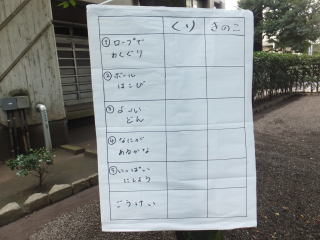 くり きのこ
①ロープで
わくぐり
②ボール
はこび
③よーい
どん
④なにが
あるかな
⑤いっぱい
にしよう
ごうけい